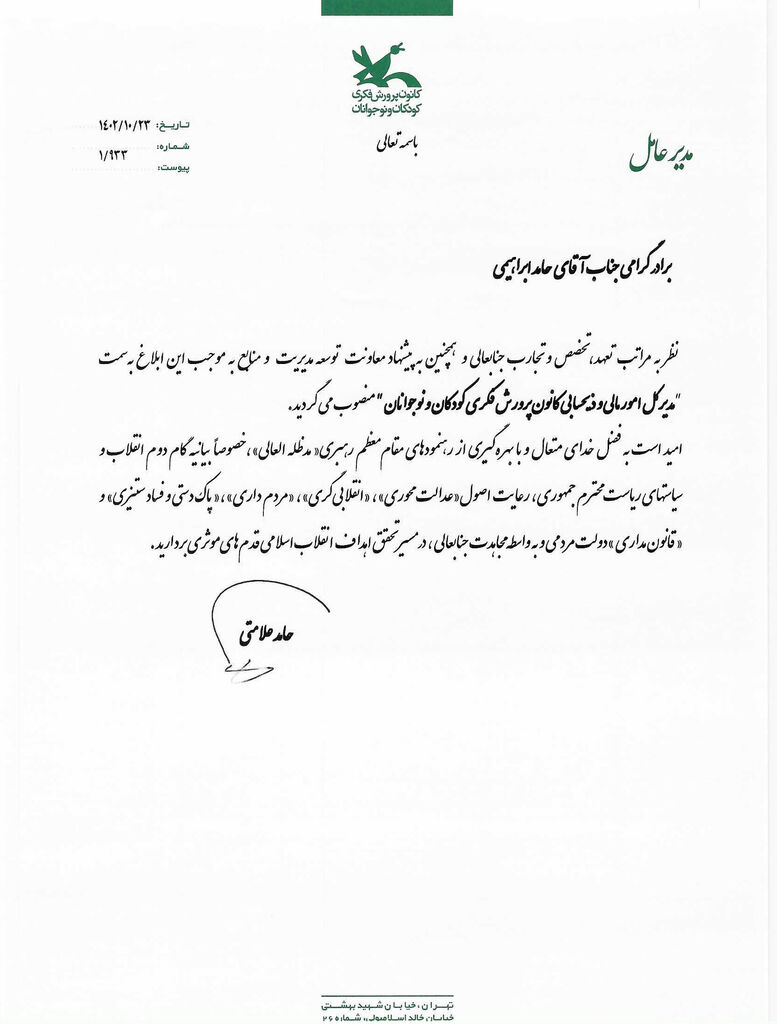 کانون پرورش فکری
کودکان و نوجوانان
باسمه تعالی
مدیر عامل
تاریخ: ۱۴۰۲/۱۰/۲۳
شماره: ۱/۹۳۳
پیوست:
برادر گرامی جناب آقای حامد ابراهیمی
نظر به مراتب تعهد، تخصص و تجارب جنابعالی و همچنین به پیشنهاد معاونت توسعه مدیریت و منابع به موجب این ابلاغ به سمت
"مدیرکل امور مالی و ذیحسابی کانون پرورش فکری کودکان و نوجوانان" منصوب می گردید.
امید است به فضل خدای متعال و با بهره گیری از رهنمودهای مقام معظم رهبری «مدظله العالی»، خصوصاً بیانیه گام دوم انقلاب و
سیاستهای ریاست محترم جمهوری، رعایت اصول «عدالت محوری»، «انقلابی گری»، «مردم داری»، «پاک دستی و فساد ستیزی» و
«قانون مداری» دولت مردمی و به واسطه مجاهدت جنابعالی، در مسیر تحقق اهداف انقلاب اسلامی قدم های موثری بردارید.
حامد علامتی
تهران، خیابان شهید بهشتی
خیابان خالد اسلامبولی، شماره ۲۶